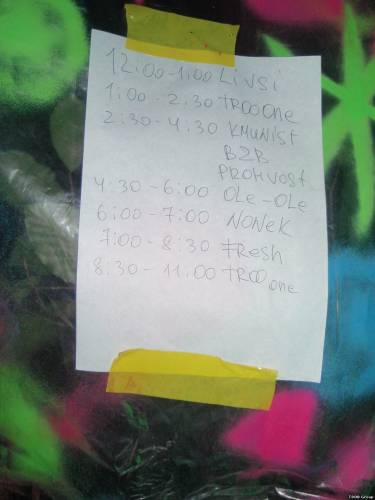 12:00-1:00 Livsi
1:00 - 2:30 TROOONE
2:30-4:30 KMUNIST
B2B
PROHVOST
4:30-6:00 OLE-OLE
6:00-7:00 NONEK
7:00-8:30 FRESH
8:30-11:00 TROO one